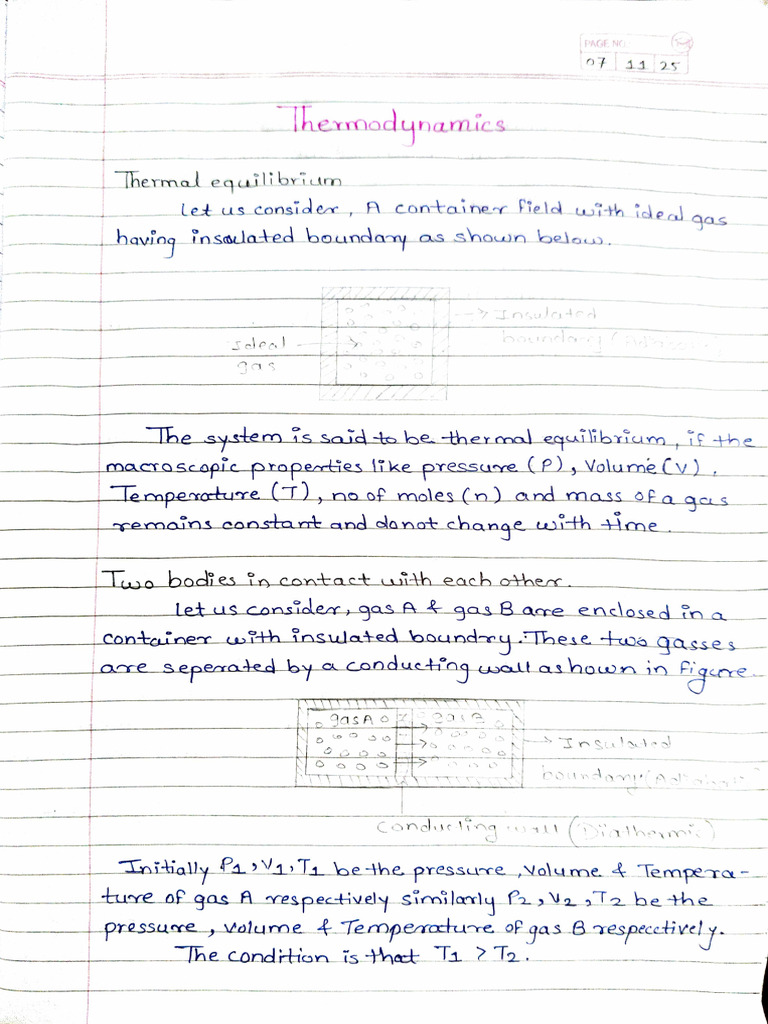 PAGE NO.
07 11 25
Thermodynamics
Thermal equilibrium
Let us consider, A container field with ideal gas
having insulated boundary as shown below.
Insulated
boundary
Ideal
gas
The system is said to be thermal equilibrium, if the
macroscopic properties like pressure (P), Volume (V).
Temperature (T), no of moles (n) and mass of a gas
remains constant and donot change with time.
Two bodies in contact with each other.
Let us consider, gas A & gas B are enclosed in a
container with insulated boundry. These two gasses
are seperated by a conducting wall as hown in figure.
gas A gas B
Insulated
boundary
conducting wall (Diathermic)
Initially P1, V1, T1 be the pressure, Volume & Tempera-
ture of gas A respectively similarly P2, V2, T2 be the
pressure, volume & Temperature of gas B respecctively.
The condition is that T1 > T2.